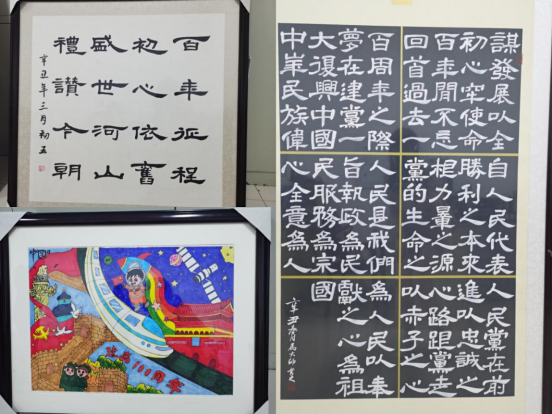 百年征程
初心依舊
盛世河山
禮讚今朝
辛丑年三月初五
中國
100周年
中華民族偉
大復興中國
夢在建黨一
百周年之際
回首過去一
百年間不忘
初心牢使命
謀發展以全
心全意為人
民服務為宗
旨執政為民
人民是我們
黨的生命之
根力量之源
勝利之本來
自人民代表
人民黨在前
進以忠誠之
心路跟黨走
以赤子之心
為人民以奉
獻之心為祖
國
辛丑